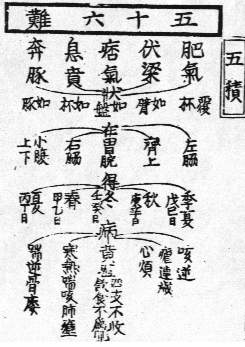 五十六難
五積
肥氣
伏梁
痞氣
息賁
奔豚
狀
覆杯
如臂
如盤
如杯
如豚
在
左脇
齊上
胃脘
右脇
小腹
上下
得
季夏
戊己日
秋
庚辛日
冬
壬癸日
春
甲乙日
夏
丙丁日
病
咳逆
瘧連歲
心煩
四支不收
黃疸飲食不為肌
寒熱喘咳肺壅
喘逆骨痿